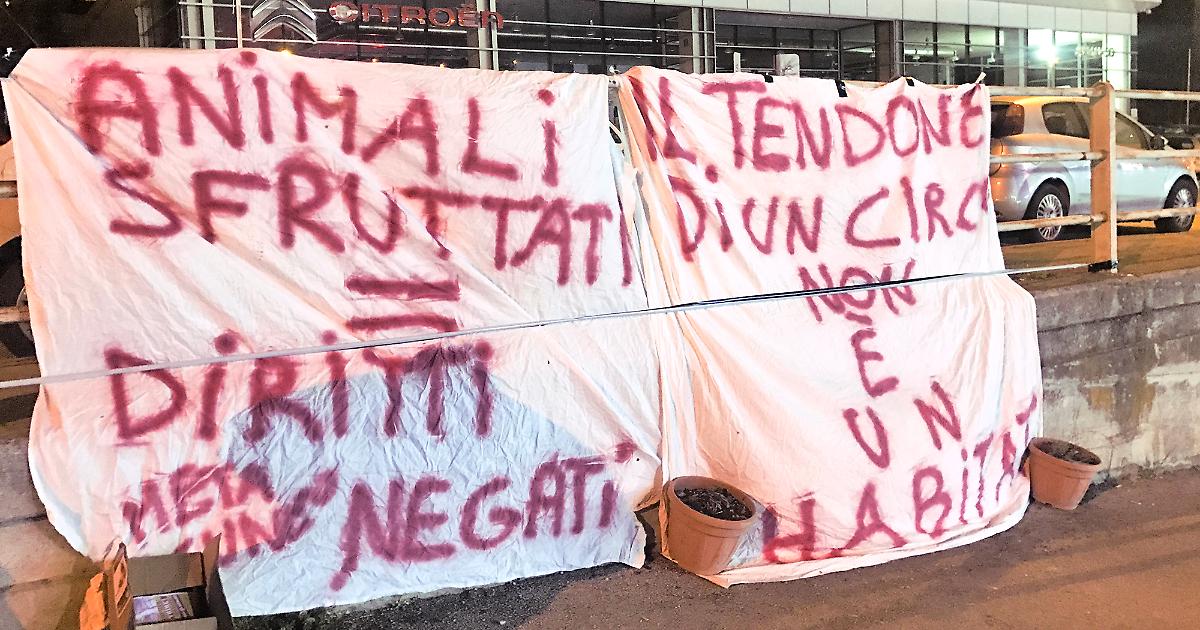 CITROËN
ANiMALi
SFRUTTATI
=
DiRiTTi
NEGATi
iL TENDONE
Di UN CIRCO
NON
È
UN
HABiTAT